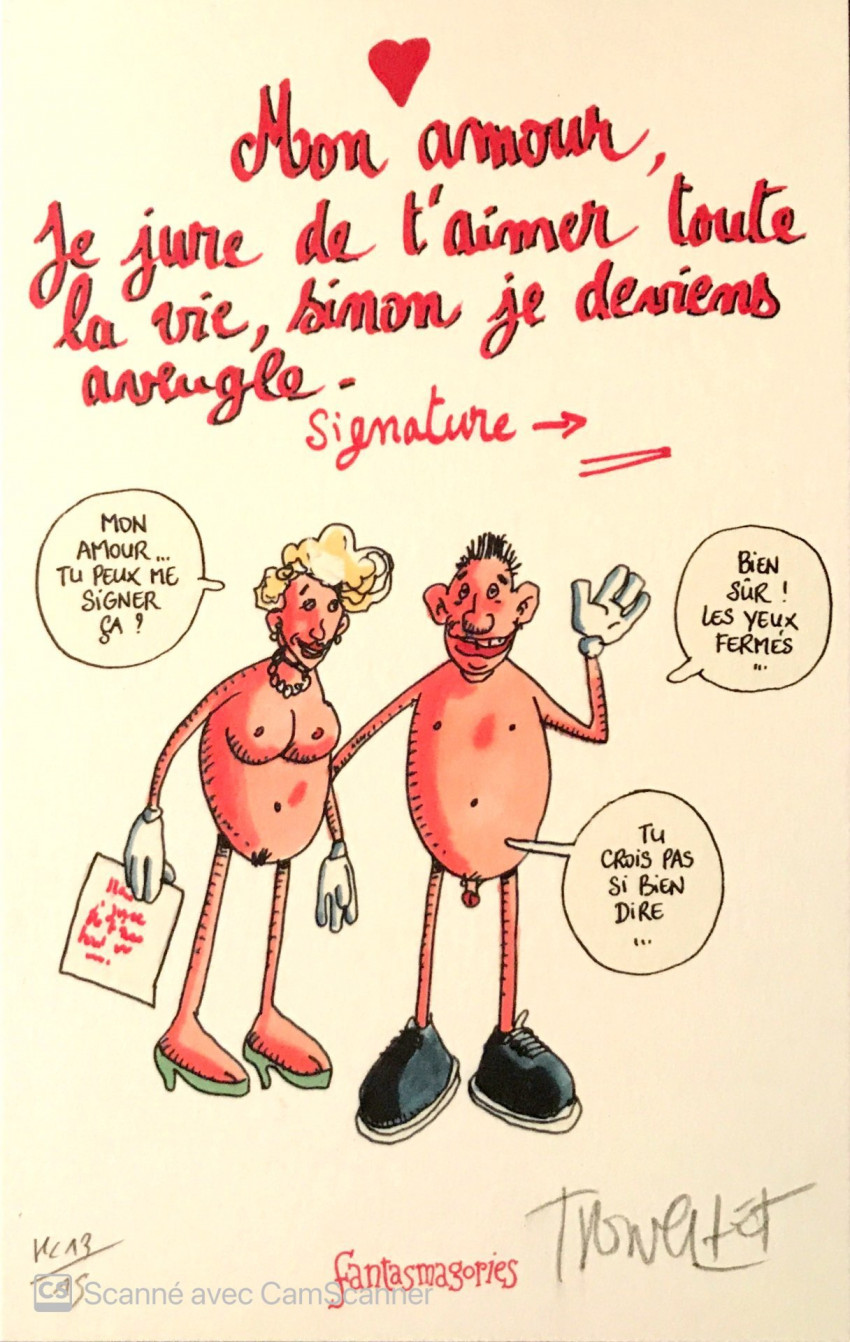 Mon amour,
Je jure de t'aimer toute
la vie, sinon je deviens
aveugle.-
Signature →
MON
AMOUR...
TU PEUX ME
SIGNER
ÇA ?
BIEN
SÛR !
LES YEUX
FERMÉS
...
TU
CROIS PAS
SI BIEN
DIRE
...
HC 13
fantasmagories
Tronchet
CS Scanné avec CamScanner